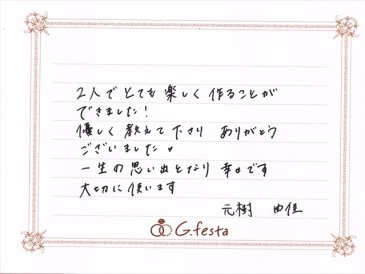 2人でとても楽しく作ることが
できました！
優しく教えて下さり ありがとう
ございました。
一生の思い出となり 幸せです
大切に使います
元樹 由佳
G.festa